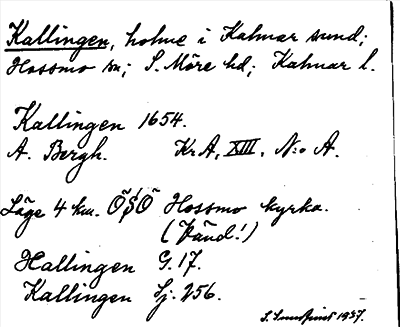 Kallingen, holme i Kalmar sund;
Hossmo sn; S. Möre hd; Kalmar l.
Kallingen 1654.
A. Bergh. Kr A, XIII. N:o A.
Läge 4 km. ÖSÖ Hossmo kyrka.
(Vänd!)
Hallingen G. 17.
Kallingen Sj. 256.
1937.